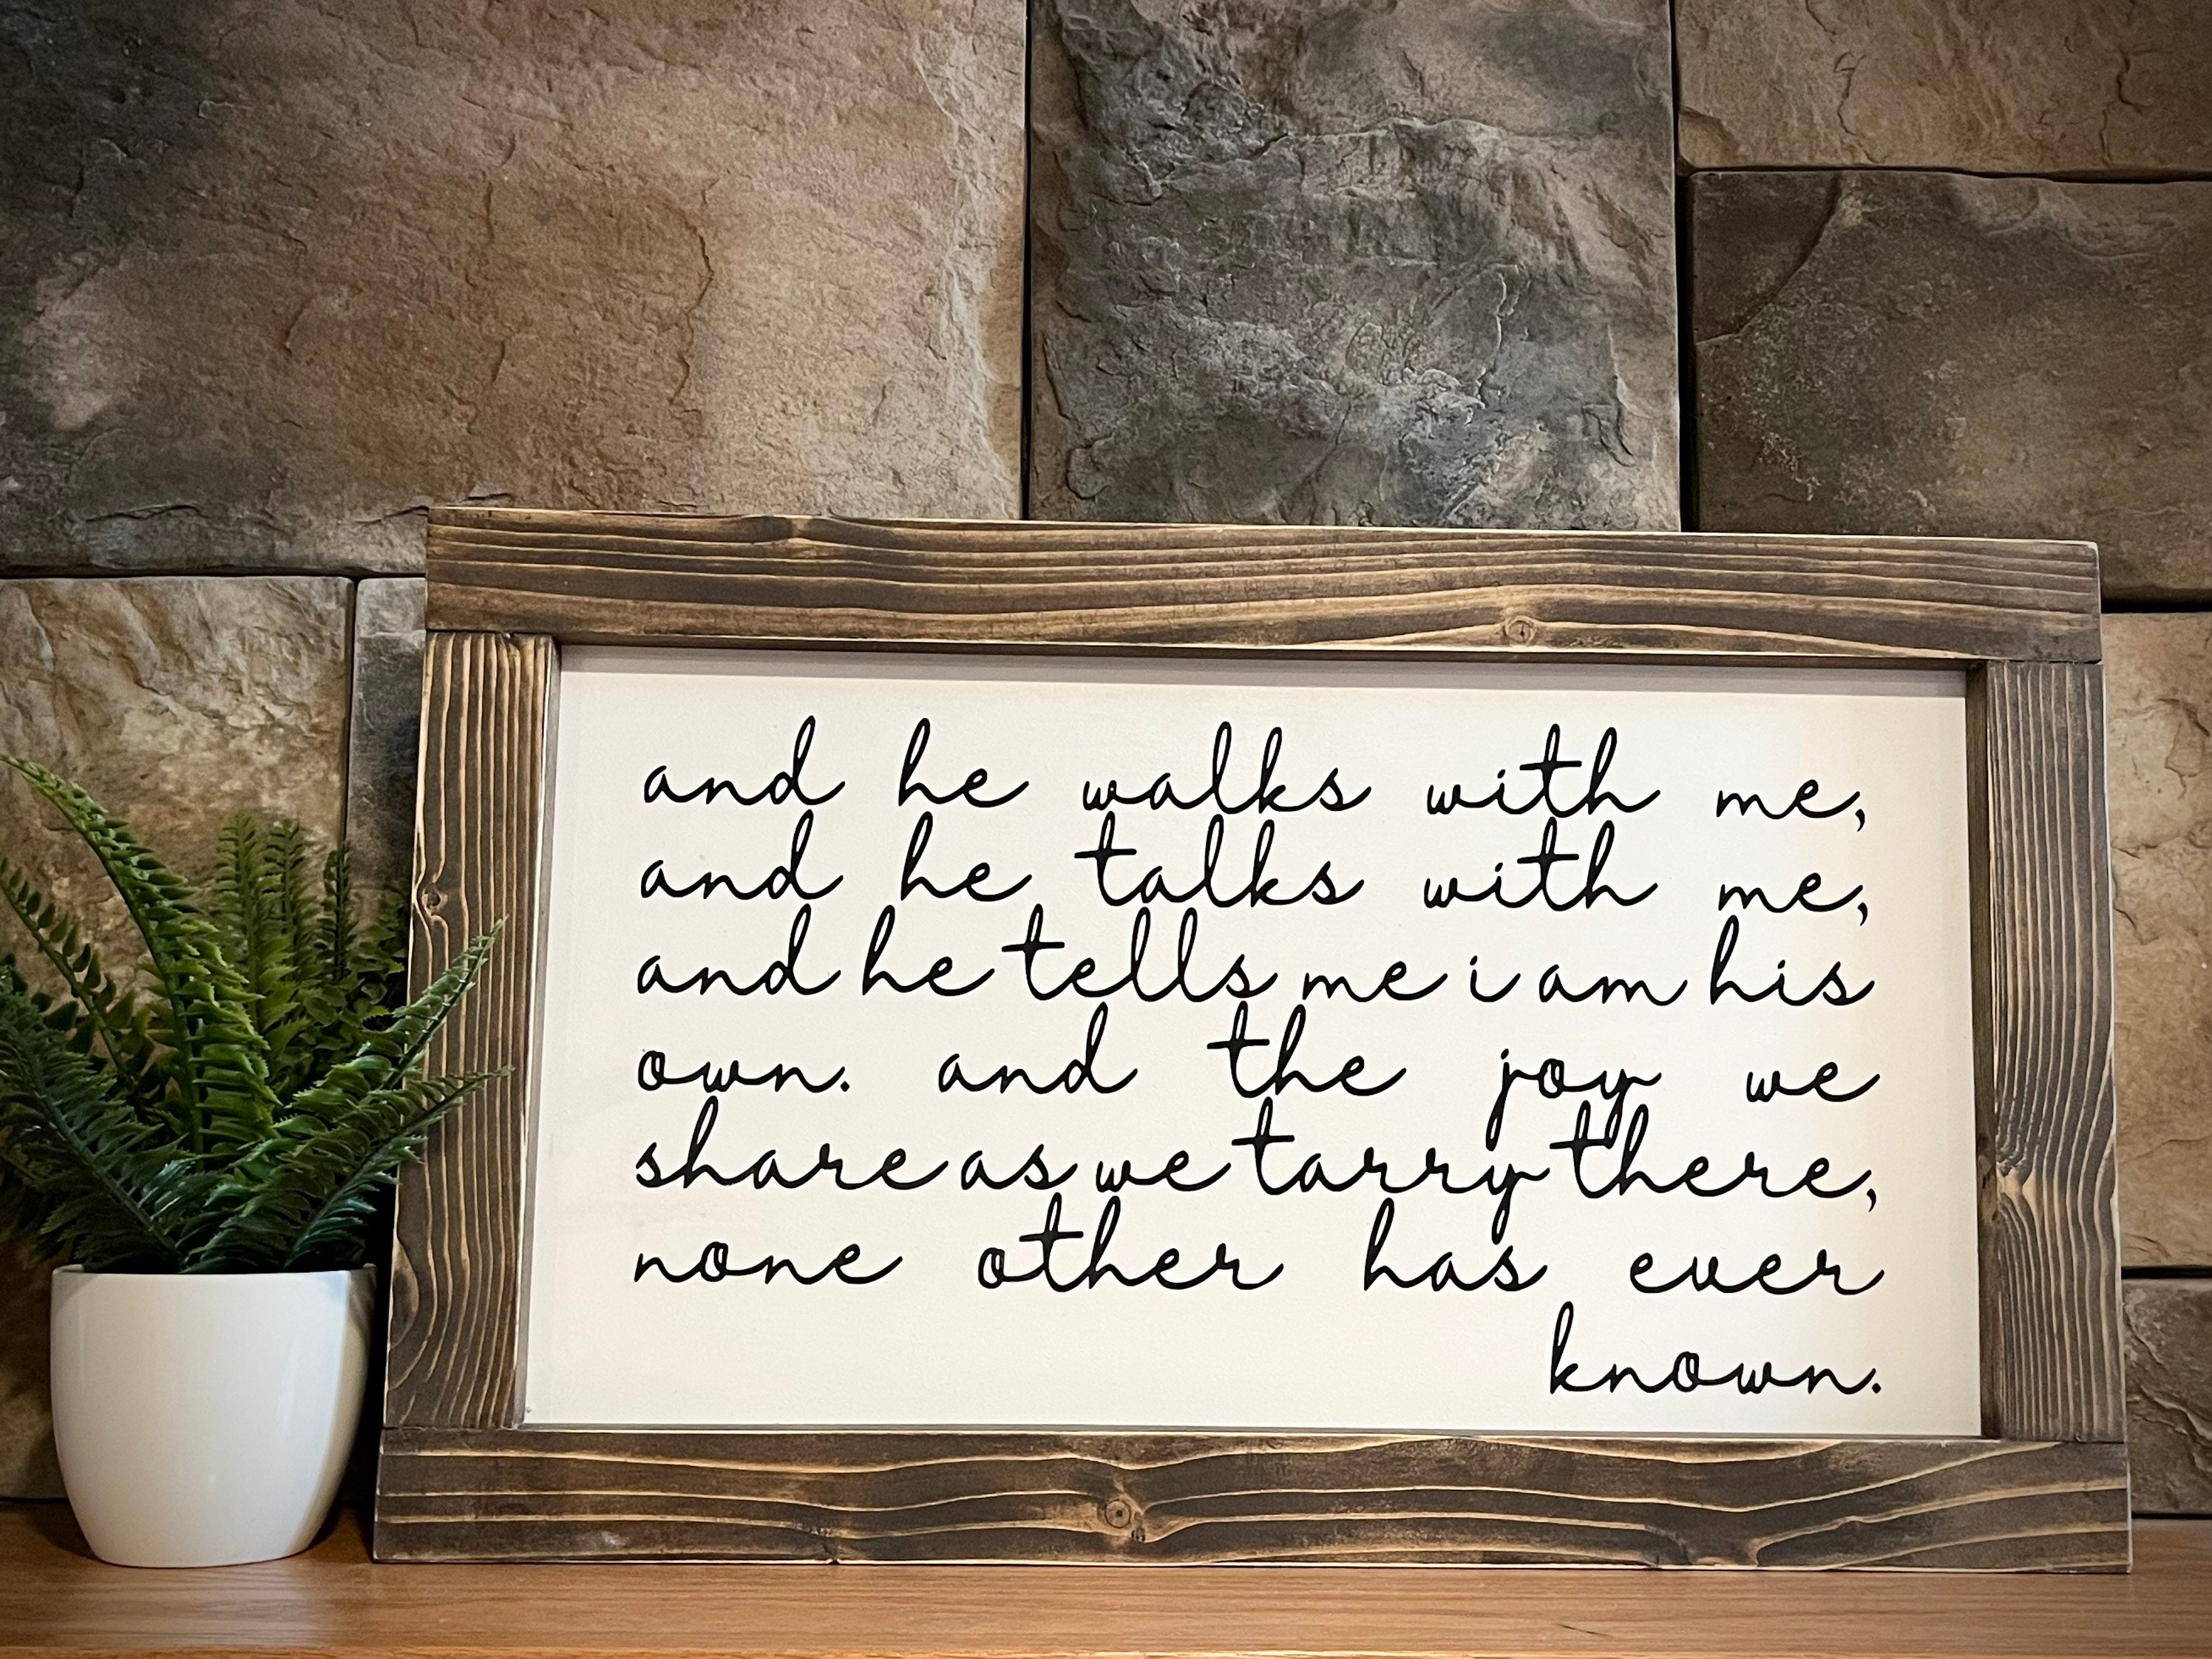 and he walks with me,
and he talks with me,
and he tells me i am his
own. and the joy we
share as we tarry there,
none other has ever
known.